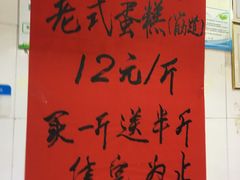 老式蛋糕(筋道)
12元/斤
买一斤送半斤
售完为止